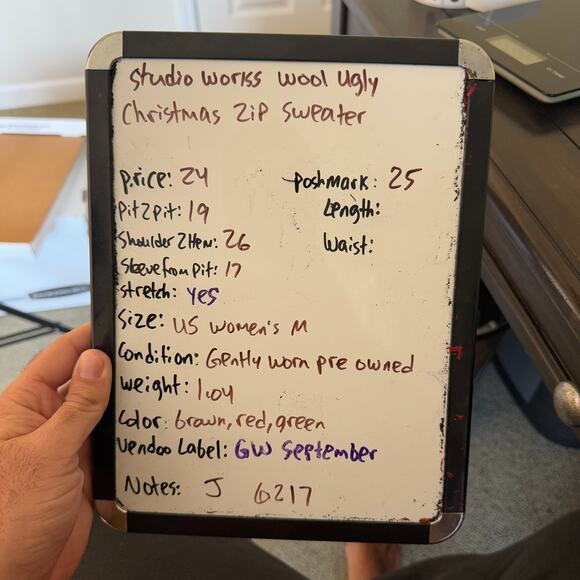 Studio works wool ugly
Christmas Zip Sweater
Price: 24
Poshmark: 25
Pit2pit: 19
Length:
Shoulder2Hem: 26
Waist:
Sleeve from Pit: 17
Stretch: Yes
Size: US women's M
Condition: Gently worn pre owned
Weight: 1.04
Color: brown, red, green
Vendoo Label: GW September
Notes: J 6217